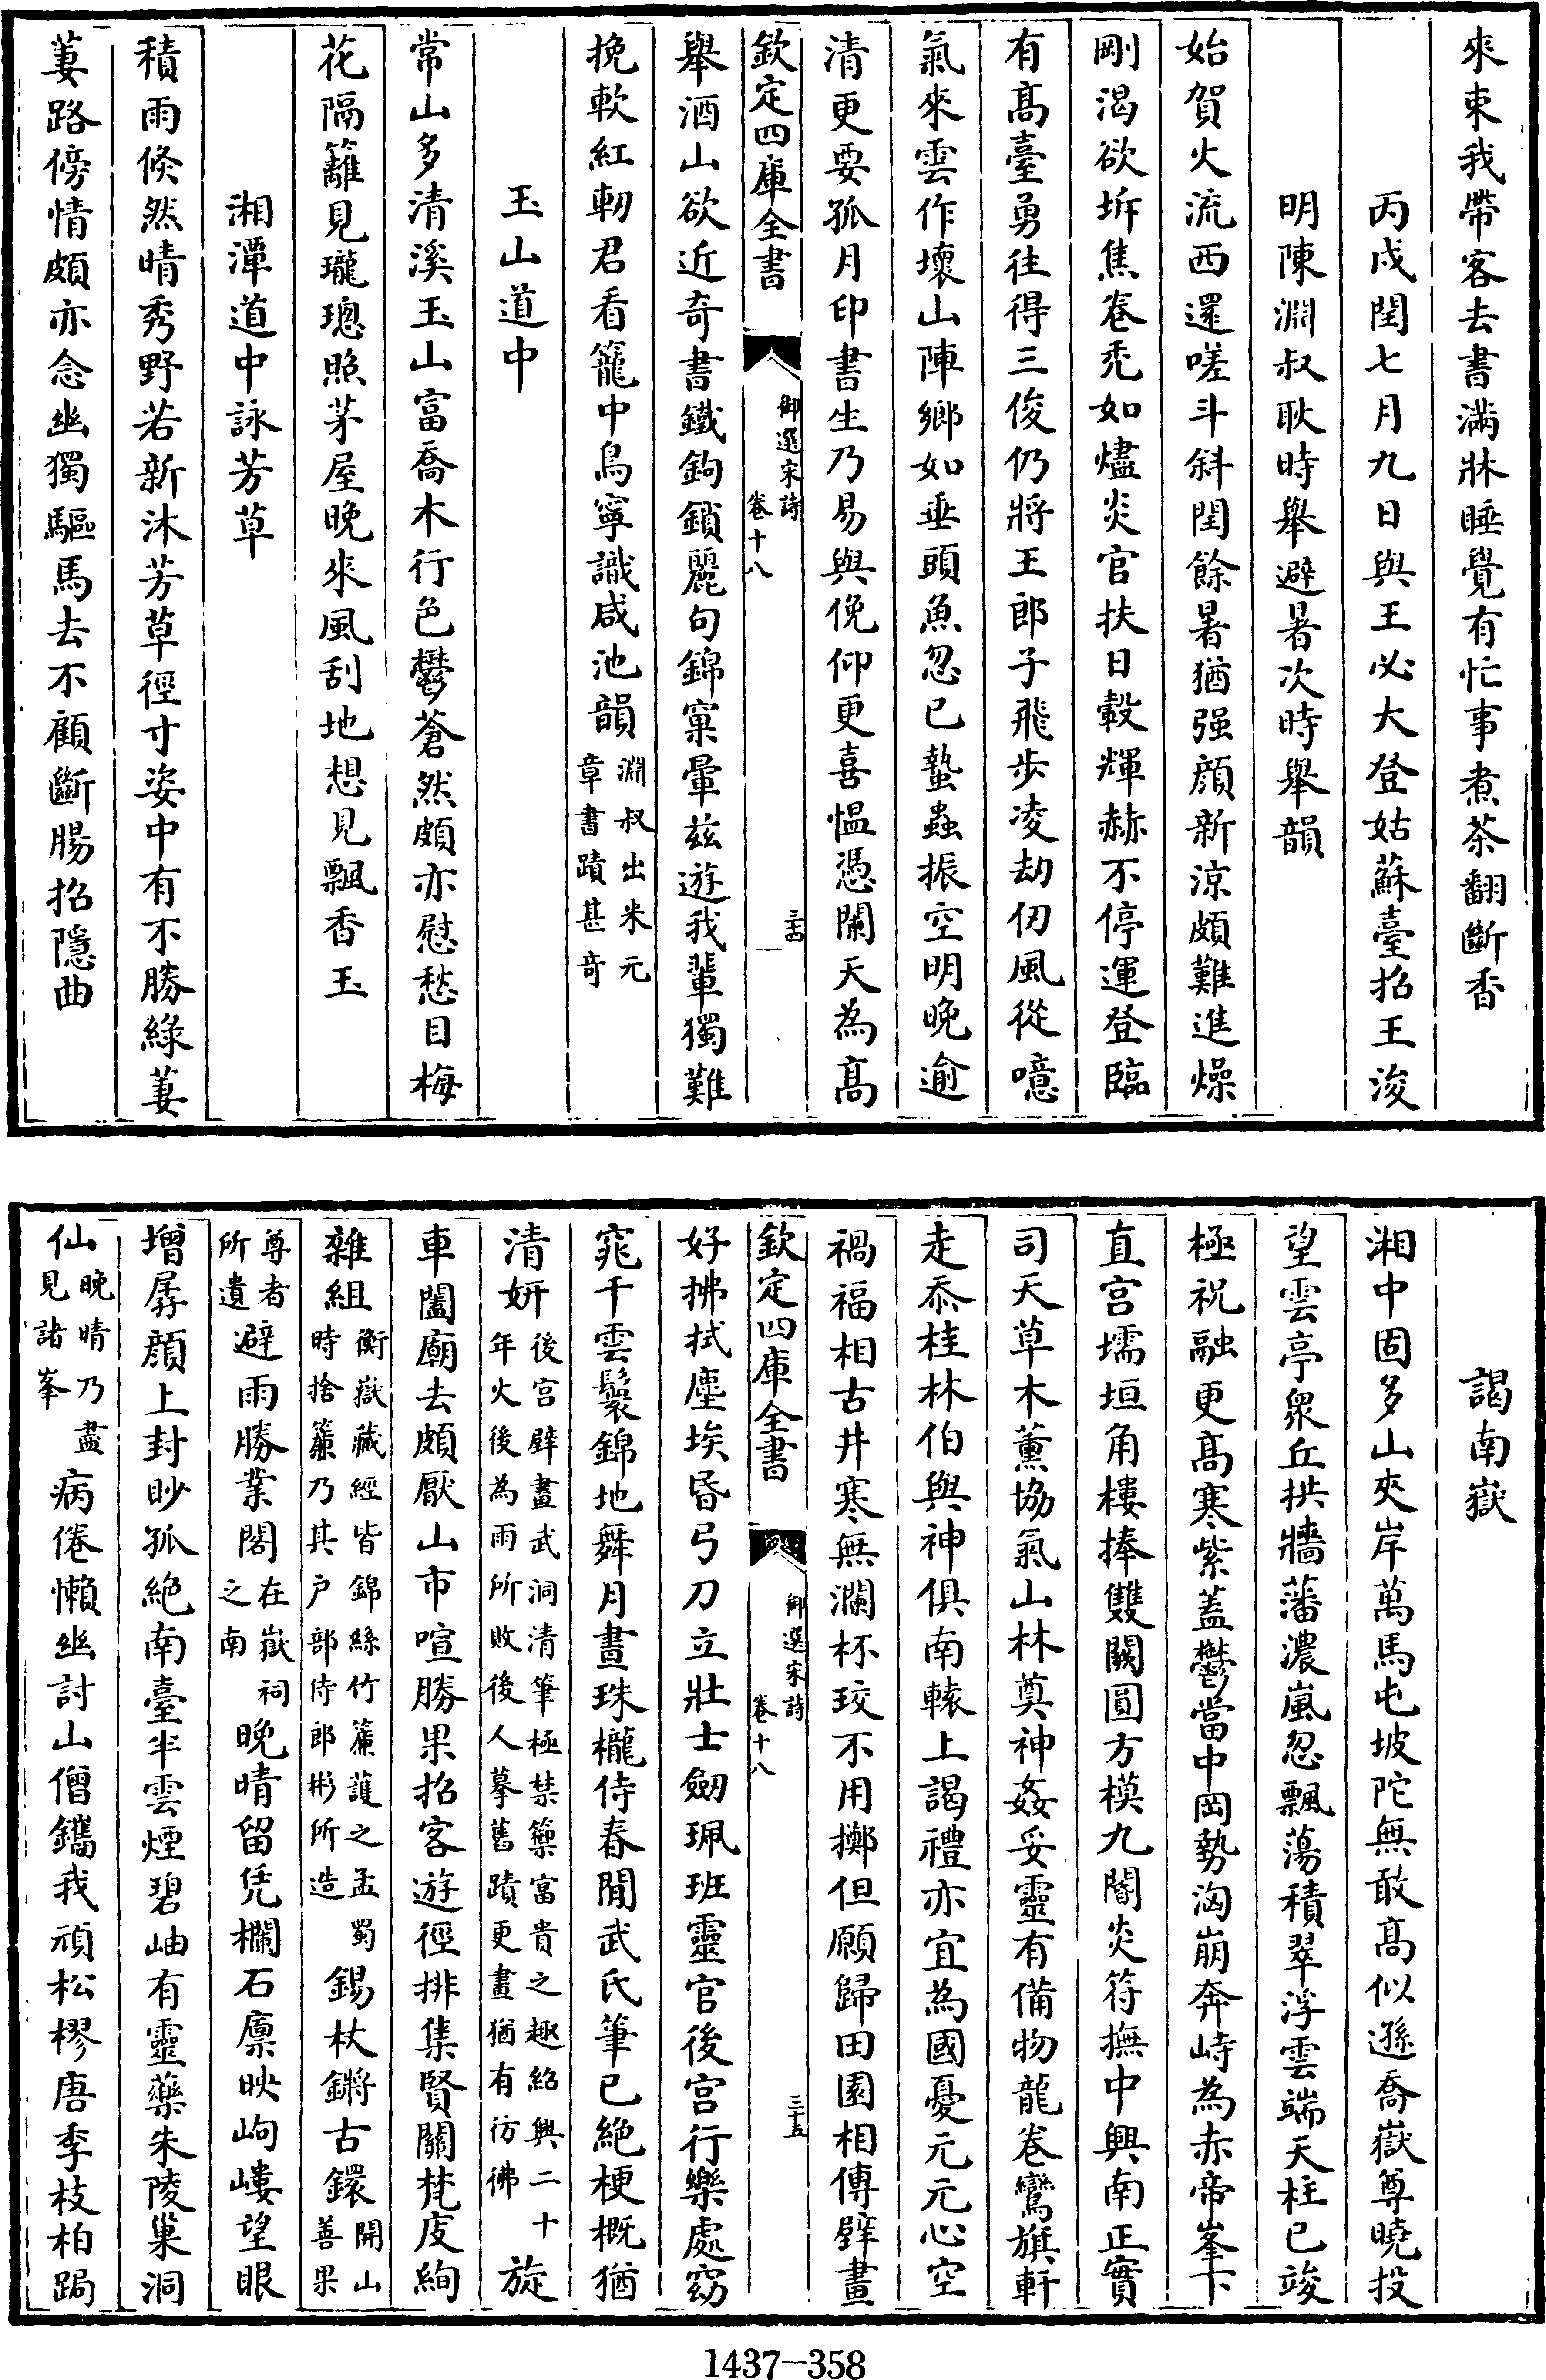 來束我帶客去書滿牀睡覺有忙事煮茶翻斷香
丙戌閏七月九日與王必大登姑蘇臺招王浚
明陳淵叔耿時舉避暑次時舉韻
始賀火流西還嗟斗斜閏餘暑猶强顔新涼頗難進燥
剛渴欲坼焦卷禿如燼炎官扶日轂輝赫不停運登臨
有髙臺勇往得三俊仍將王郎子飛步凌劫仞風從噫
氣來雲作壞山陣鄉如垂頭魚忽已蟄蟲振空明晩逾
清更要孤月印書生乃易與俛仰更喜愠憑闌天為髙
欽定四庫全書
御選宋詩
卷十八
三十四
舉酒山欲近奇書鐵鉤鎖麗句錦窠暈兹遊我輩獨難
挽軟紅軔君看籠中鳥寧識咸池韻淵叔出米元
章書蹟甚奇
玉山道中
常山多清溪玉山富喬木行色鬱蒼然頗亦慰愁目梅
花隔籬見瓏璁照茅屋晚來風刮地想見飄香玉
湘潭道中詠芳草
積雨倏然晴秀野若新沐芳草徑寸姿中有不勝綠萋
萋路傍情頗亦念幽獨驅馬去不顧斷腸招隱曲
謁南嶽
湘中固多山夾岸萬馬屯坡陀無敢髙似遜喬嶽尊曉投
望雲亭衆丘拱牆藩濃嵐忽飄蕩積翠浮雲端天柱已竣
極祝融更髙寒紫蓋鬱當中岡勢洶崩奔峙為赤帝峯下
直宫壖垣角樓捧雙闕圓方模九閽炎符撫中興南正實
司天草木薰協氣山林奠神姦妥靈有備物龍卷鸞旗軒
走忝桂林伯與神俱南轅上謁禮亦宜為國憂元元心空
禍福相古井寒無瀾杯珓不用擲但願歸田園相傳壁畫
欽定四庫全書
御選宋詩
卷十八
三十五
好拂拭塵埃昏弓刀立壯士劒珮班靈官後宫行樂處窈
窕千雲鬟錦地舞月晝珠櫳侍春閒武氏筆已絶梗概猶
清妍後宫壁畫武洞清筆極禁籞富貴之趣紹興二十
年火後為雨所敗後人摹舊蹟更畫猶有彷彿旋
車闔廟去頗厭山市喧勝果招客遊徑排集賢關梵庋絢
雜組衡嶽藏經皆錦絲竹簾護之孟蜀
時捨簾乃其户部侍郎彬所造錫杖鏘古鐶開山
善果
尊者
所遺避雨勝業閣在嶽祠
之南晚晴留凭欄石廪映岣嶁望眼
增孱顔上封眇孤絶南臺半雲煙碧岫有靈藥朱陵巢洞
仙晚晴乃盡
見諸峯病倦懶幽討山僧鐫我頑松樛唐季枝柏跼
1437-358